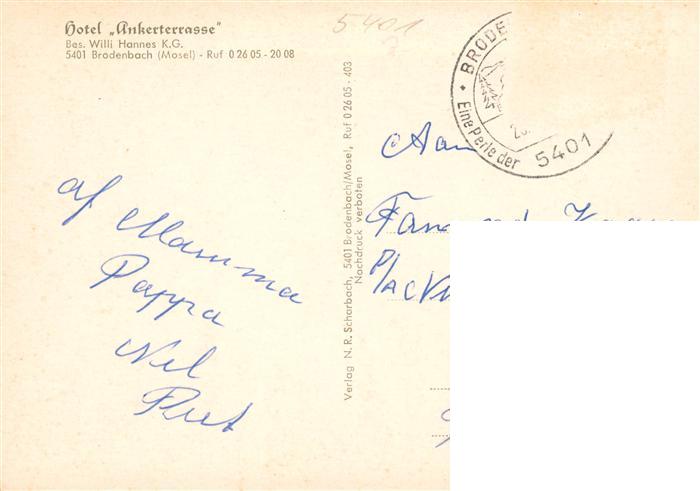 Hotel „Ankerterrasse"
Bes. Willi Hannes K.G.
5401 Brodenbach (Mosel) - Ruf 0 26 05 - 20 08
5401
BRODE
Eine Perle der
5401
Verlag N. R. Scharbach, 5401 Brodenbach/Mosel, Ruf 0 26 05 - 403
Nachdruck verboten
af Mamma
Pappa
Nel
Aan
Fam